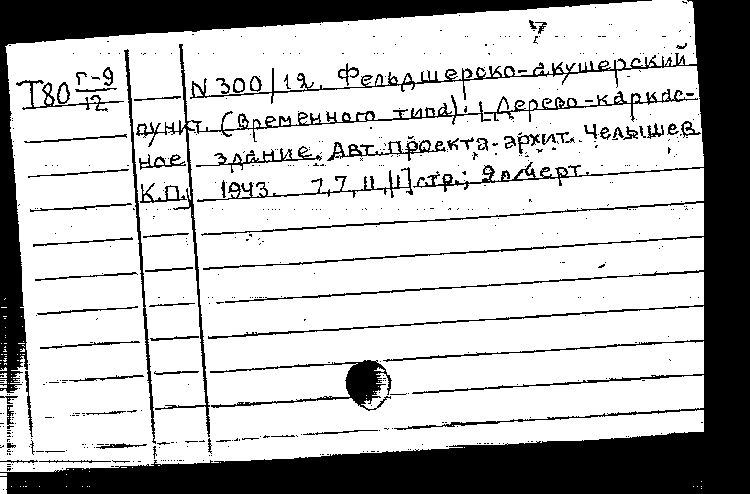 7
Т80 Г-9/12
N 300/12. Фельдшерско-акушерский
пункт. (Временного типа). Дерево-каркас-
ное здание. Авт. проекта-архит. Челышев
К.П. 1943. 7, 7, 11, [1] стр.; 9 л. черт.